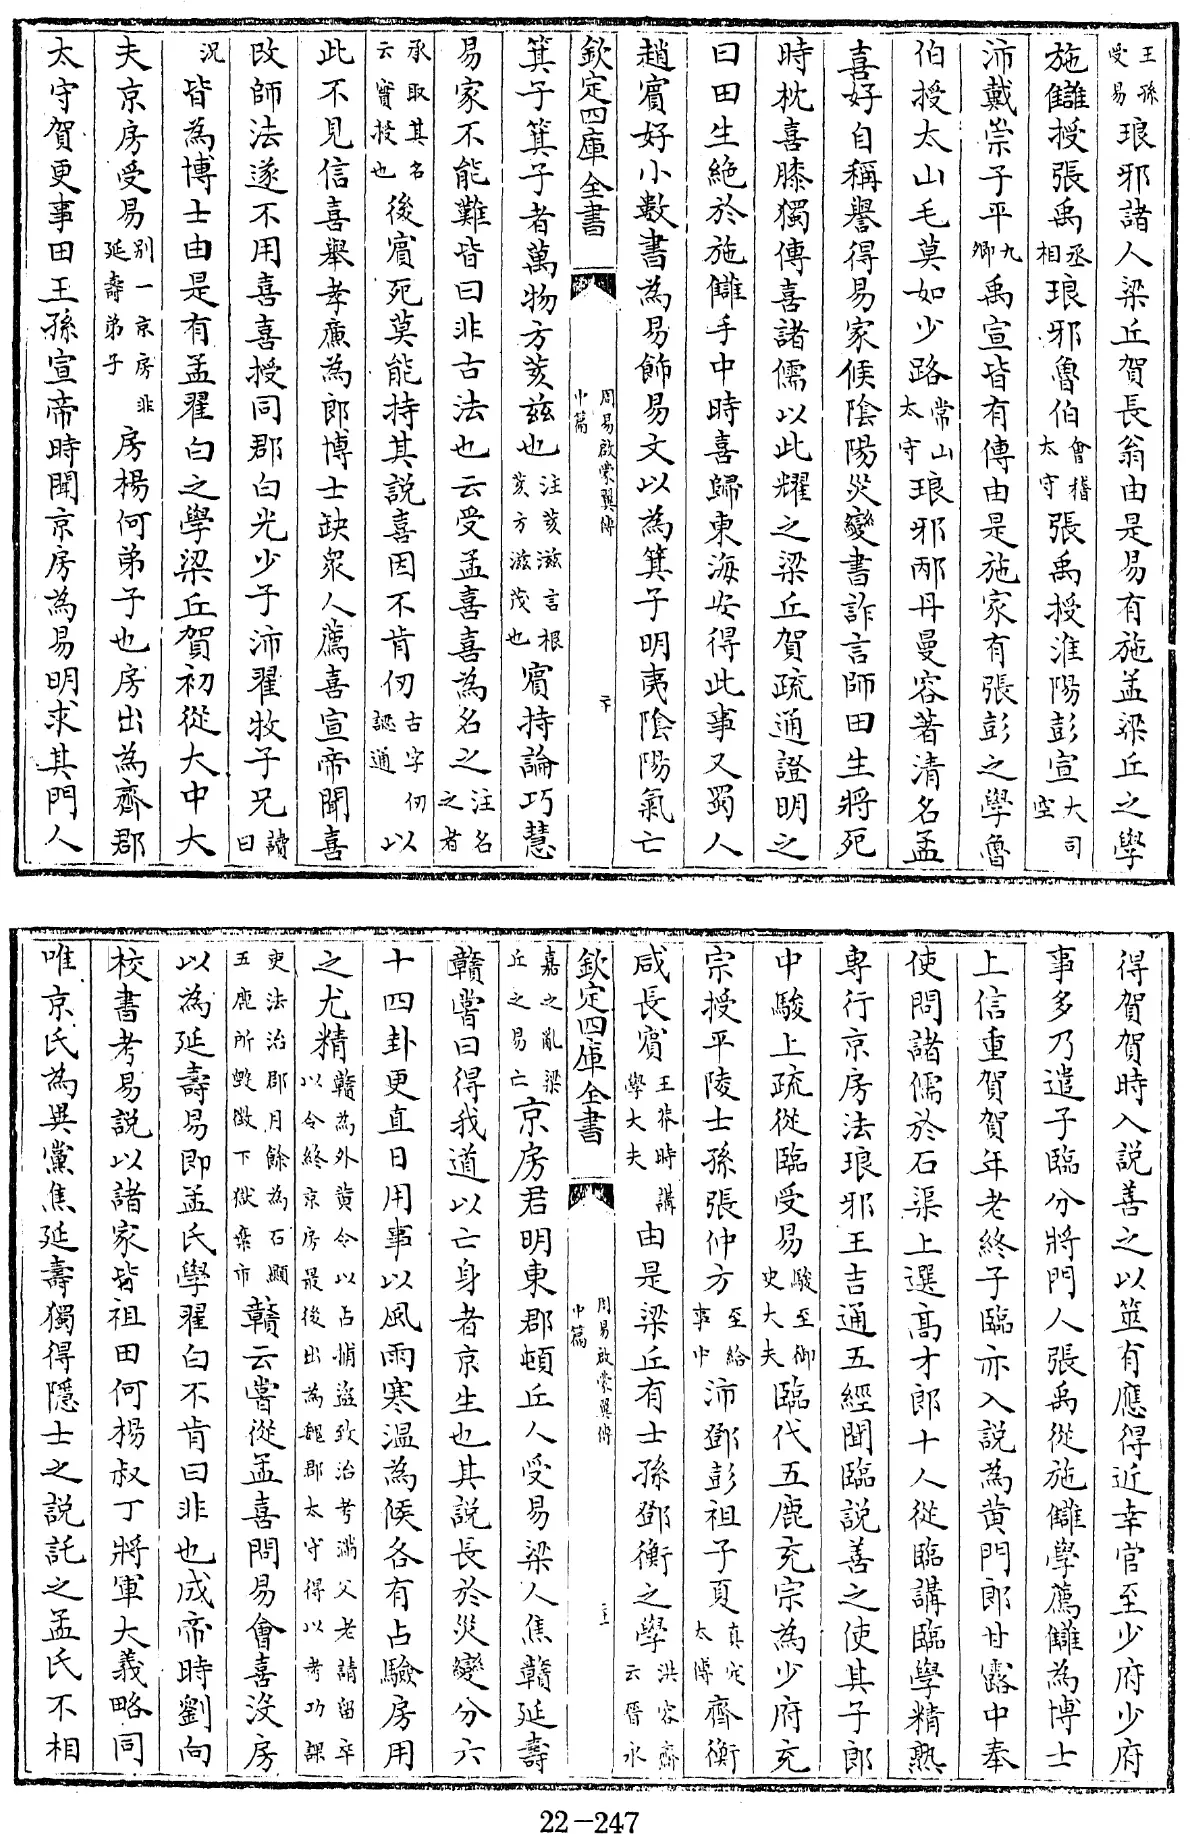 王孫受易琅邪諸人梁丘賀長翁由是易有施孟梁丘之學
施讎授張禹丞相琅邪魯伯會稽太守張禹授淮陽彭宣大司空
沛戴崇子平九卿禹宣皆有傳由是施家有張彭之學魯
伯授太山毛莫如少路常山太守琅邪邴丹曼容著清名孟
喜好自稱譽得易家候陰陽災變書詐言師田生將死
時枕喜膝獨傳喜諸儒以此耀之梁丘賀疏通證明之
曰田生絕於施讎手中時喜歸東海安得此事又蜀人
趙賓好小數書為易飾易文以為箕子明夷陰陽氣亡
欽定四庫全書 周易啟蒙翼傳中篇 二十
箕子箕子者萬物方荄茲也注荄滋言根荄方滋茂也賓持論巧慧
易家不能難皆曰非古法也云受孟喜喜為名之注名之者
承取其名云實授也後賓死莫能持其説喜因不肯仞古字仞認通以
此不見信喜舉孝廉為郎博士缺衆人薦喜宣帝聞喜
改師法遂不用喜喜授同郡白光少子沛翟牧子兄讀曰
況皆為博士由是有孟翟白之學梁丘賀初從大中大
夫京房受易別一京房非延壽弟子房楊何弟子也房出為齊郡
太守賀更事田王孫宣帝時聞京房為易明求其門人
得賀賀時入説善之以筮有應得近幸官至少府少府
事多乃遣子臨分將門人張禹從施讎學薦讎為博士
上信重賀賀年老終子臨亦入説為黄門郎甘露中奉
使問諸儒於石渠上選高才郎十人從臨講臨學精熟
專行京房法琅邪王吉通五經聞臨説善之使其子郎
中駿上疏從臨受易駿至御史大夫臨代五鹿充宗為少府充
宗授平陵士孫張仲方至給事中沛鄧彭祖子夏真定太傅齊衡
咸長賓王莽時講學大夫由是梁丘有士孫鄧衡之學洪容齋云晉永
欽定四庫全書 周易啟蒙翼傳中篇 二十一
嘉之亂梁丘之易亡京房君明東郡頓丘人受易梁人焦贛延壽
贛嘗曰得我道以亡身者京生也其説長於災變分六
十四卦更直日用事以風雨寒温為候各有占驗房用
之尤精贛為外黄令以占捕盜致治考滿父老請留卒以令終京房最後出為魏郡太守得以考功課
吏法治郡月餘為石顯五鹿所譖徵下獄棄市贛云嘗從孟喜問易會喜沒房
以為延壽易即孟氏學翟白不肯曰非也成帝時劉向
校書考易説以諸家皆祖田何楊叔丁將軍大義略同
唯京氏為異黨焦延壽獨得隱士之説託之孟氏不相
22-247